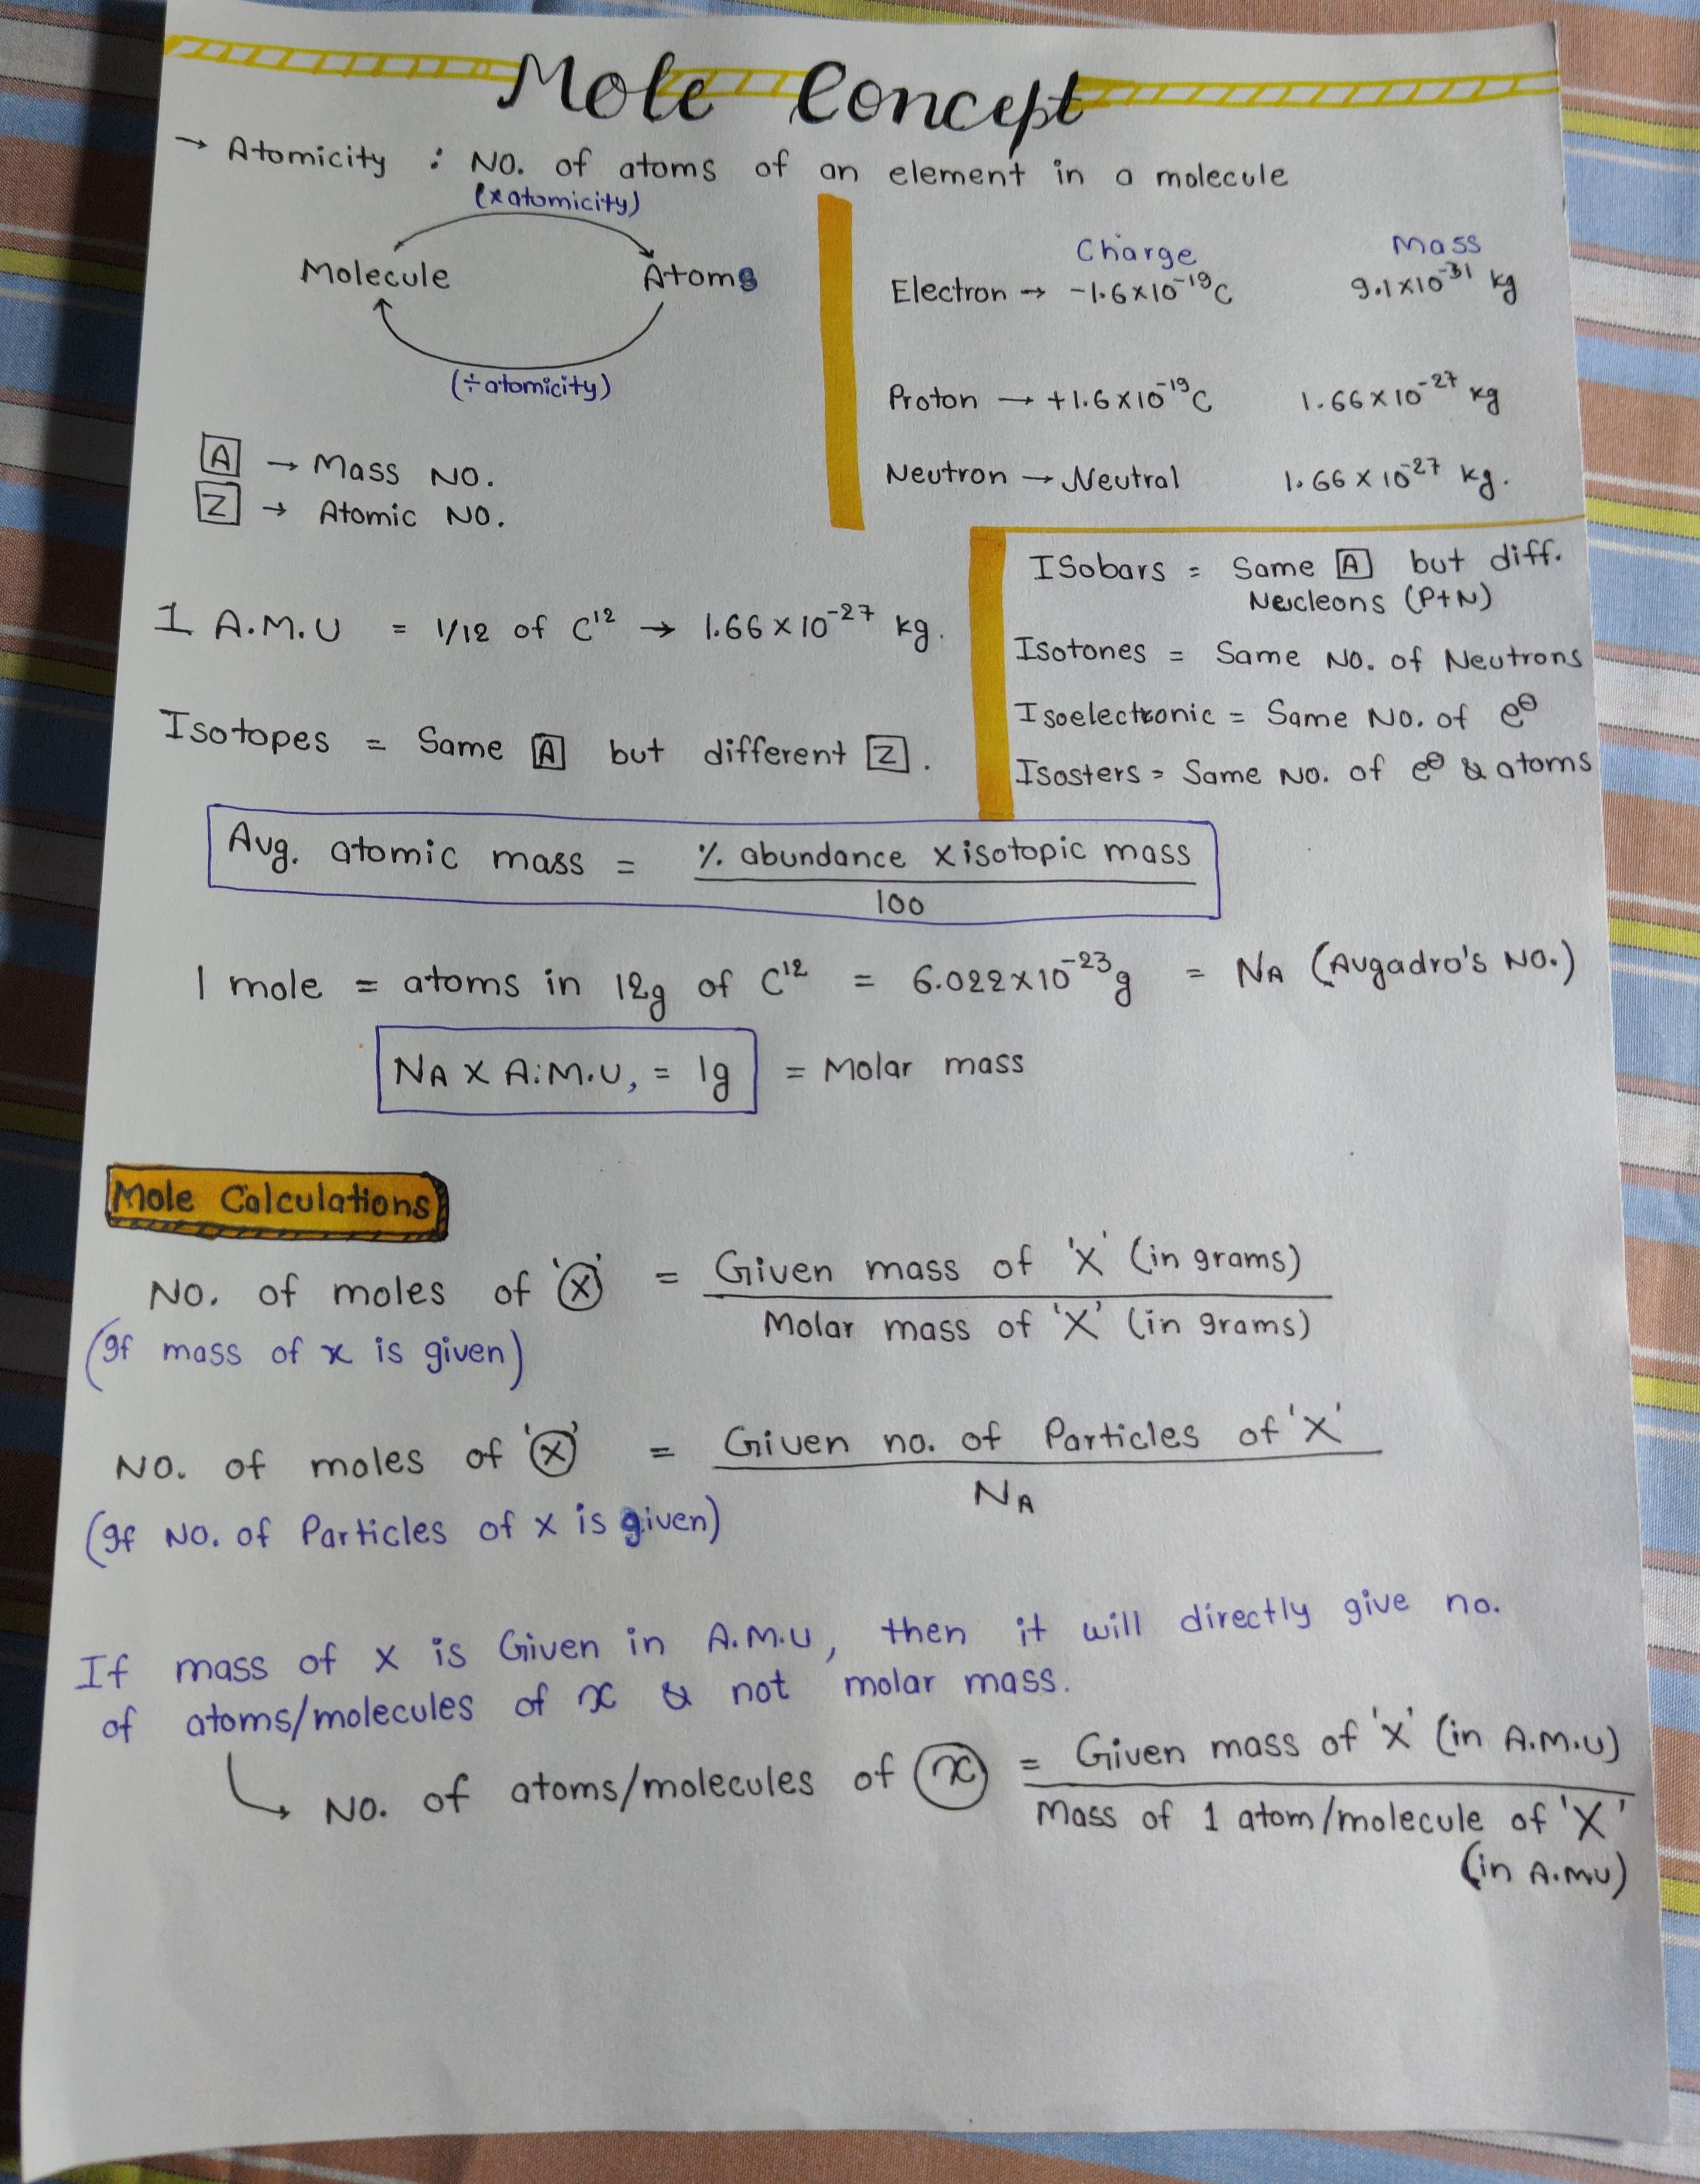 Mole Concept
→ Atomicity : NO. of atoms of an element in a molecule
(×atomicity)
Molecule Atoms
(÷atomicity)
A → Mass NO.
Z → Atomic NO.
Charge Mass
Electron → -1.6×10⁻¹⁹C 9.1×10⁻³¹ kg
Proton → +1.6×10⁻¹⁹C 1.66×10⁻²⁷ kg
Neutron → Neutral 1.66×10⁻²⁷ kg.
1 A.M.U = 1/12 of C¹² → 1.66×10⁻²⁷ kg.
Isotopes = Same A but different Z.
ISobars = Same A but diff.
Neucleons (P+N)
Isotones = Same NO. of Neutrons
Isoelectronic = Same NO. of e⊖
Isosters = Same NO. of e⊖ & atoms
Avg. atomic mass = % abundance × isotopic mass
100
1 mole = atoms in 12g of C¹² = 6.022×10⁻²³g = NA (Avgadro's NO.)
NA × A.M.U, = 1g = Molar mass
Mole Calculations
NO. of moles of 'X' = Given mass of 'X' (in grams)
Molar mass of 'X' (in grams)
(If mass of x is given)
NO. of moles of 'X' = Given no. of Particles of 'X'
NA
(If NO. of Particles of x is given)
If mass of x is Given in A.M.U, then it will directly give no.
of atoms/molecules of x & not molar mass.
NO. of atoms/molecules of x = Given mass of 'X' (in A.M.U)
Mass of 1 atom/molecule of 'X'
(in A.M.U)